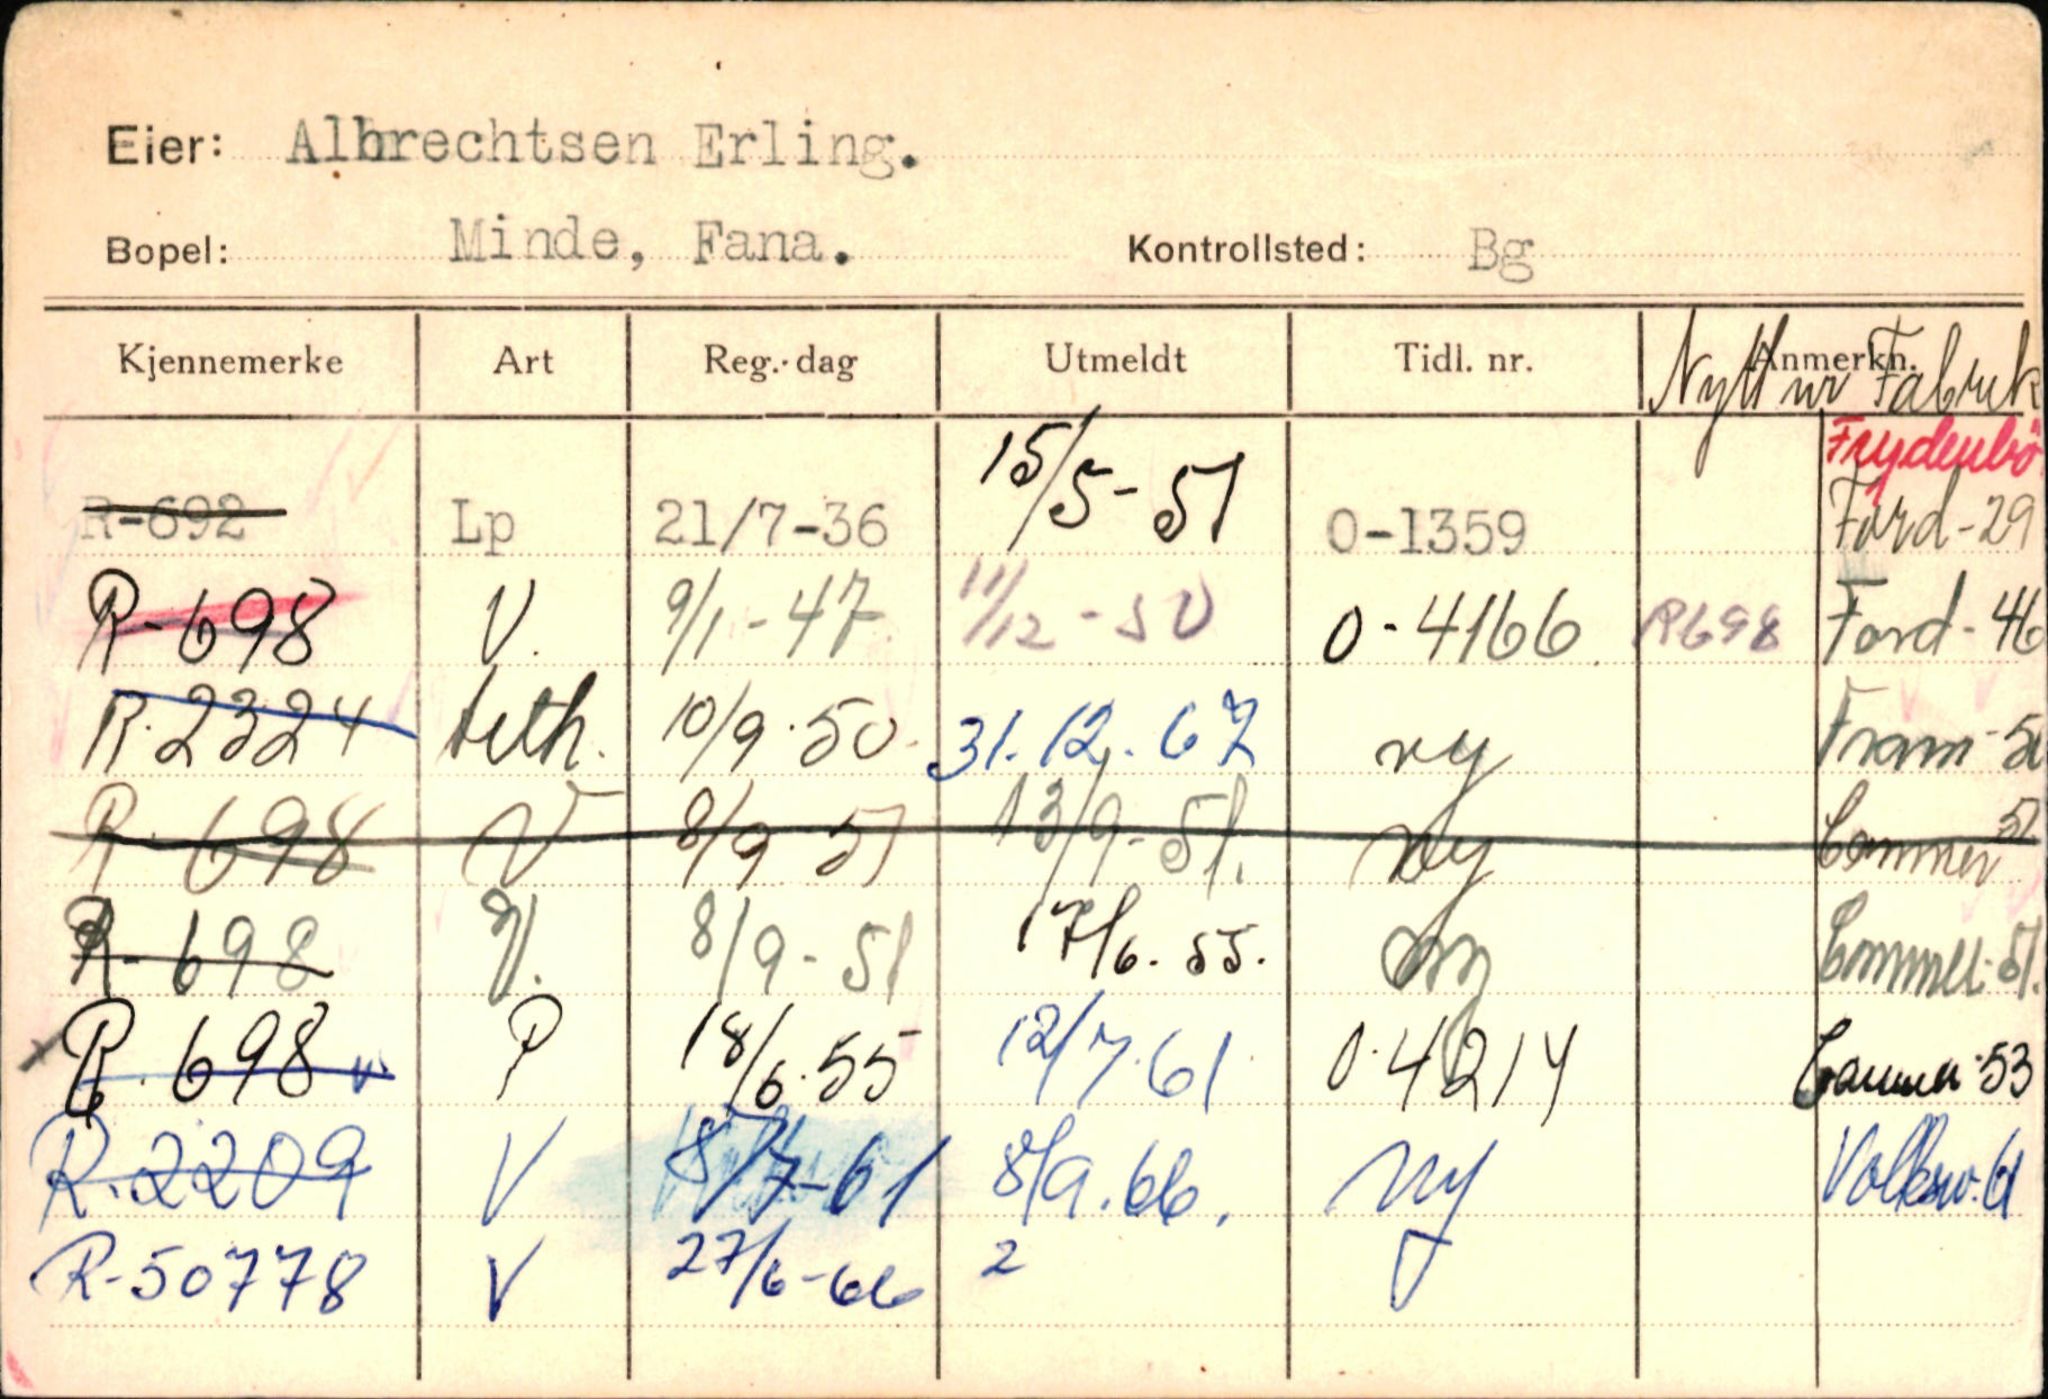 Eier: Albrechtsen Erling.
Bopel: Minde, Fana. Kontrollsted: Bg
Kjennemerke Art Reg.-dag Utmeldt Tidl. nr. Anmerkn. Nytt nr Fabrik
Frydenbö
R-692 Lp 21/7-36 15/5-51 O-1359 Ford-29
R-698 V. 9/1-47 11/12-50 O-4166 R698 Ford-46
R.2324 10/9.50 31.12.67 ny Fram-50
R-698 V 8/9 51 13/9-51. ny Commer 51
R-698 V. 8/9-51 17/6.55. Commer-51.
R.698 P 18/6.55 12/7.61 O.4214 Commer-53
R.2209 V 8/7-61 8/9.66. ny Volksw.61
R-50778 V 27/6-66 2 ny